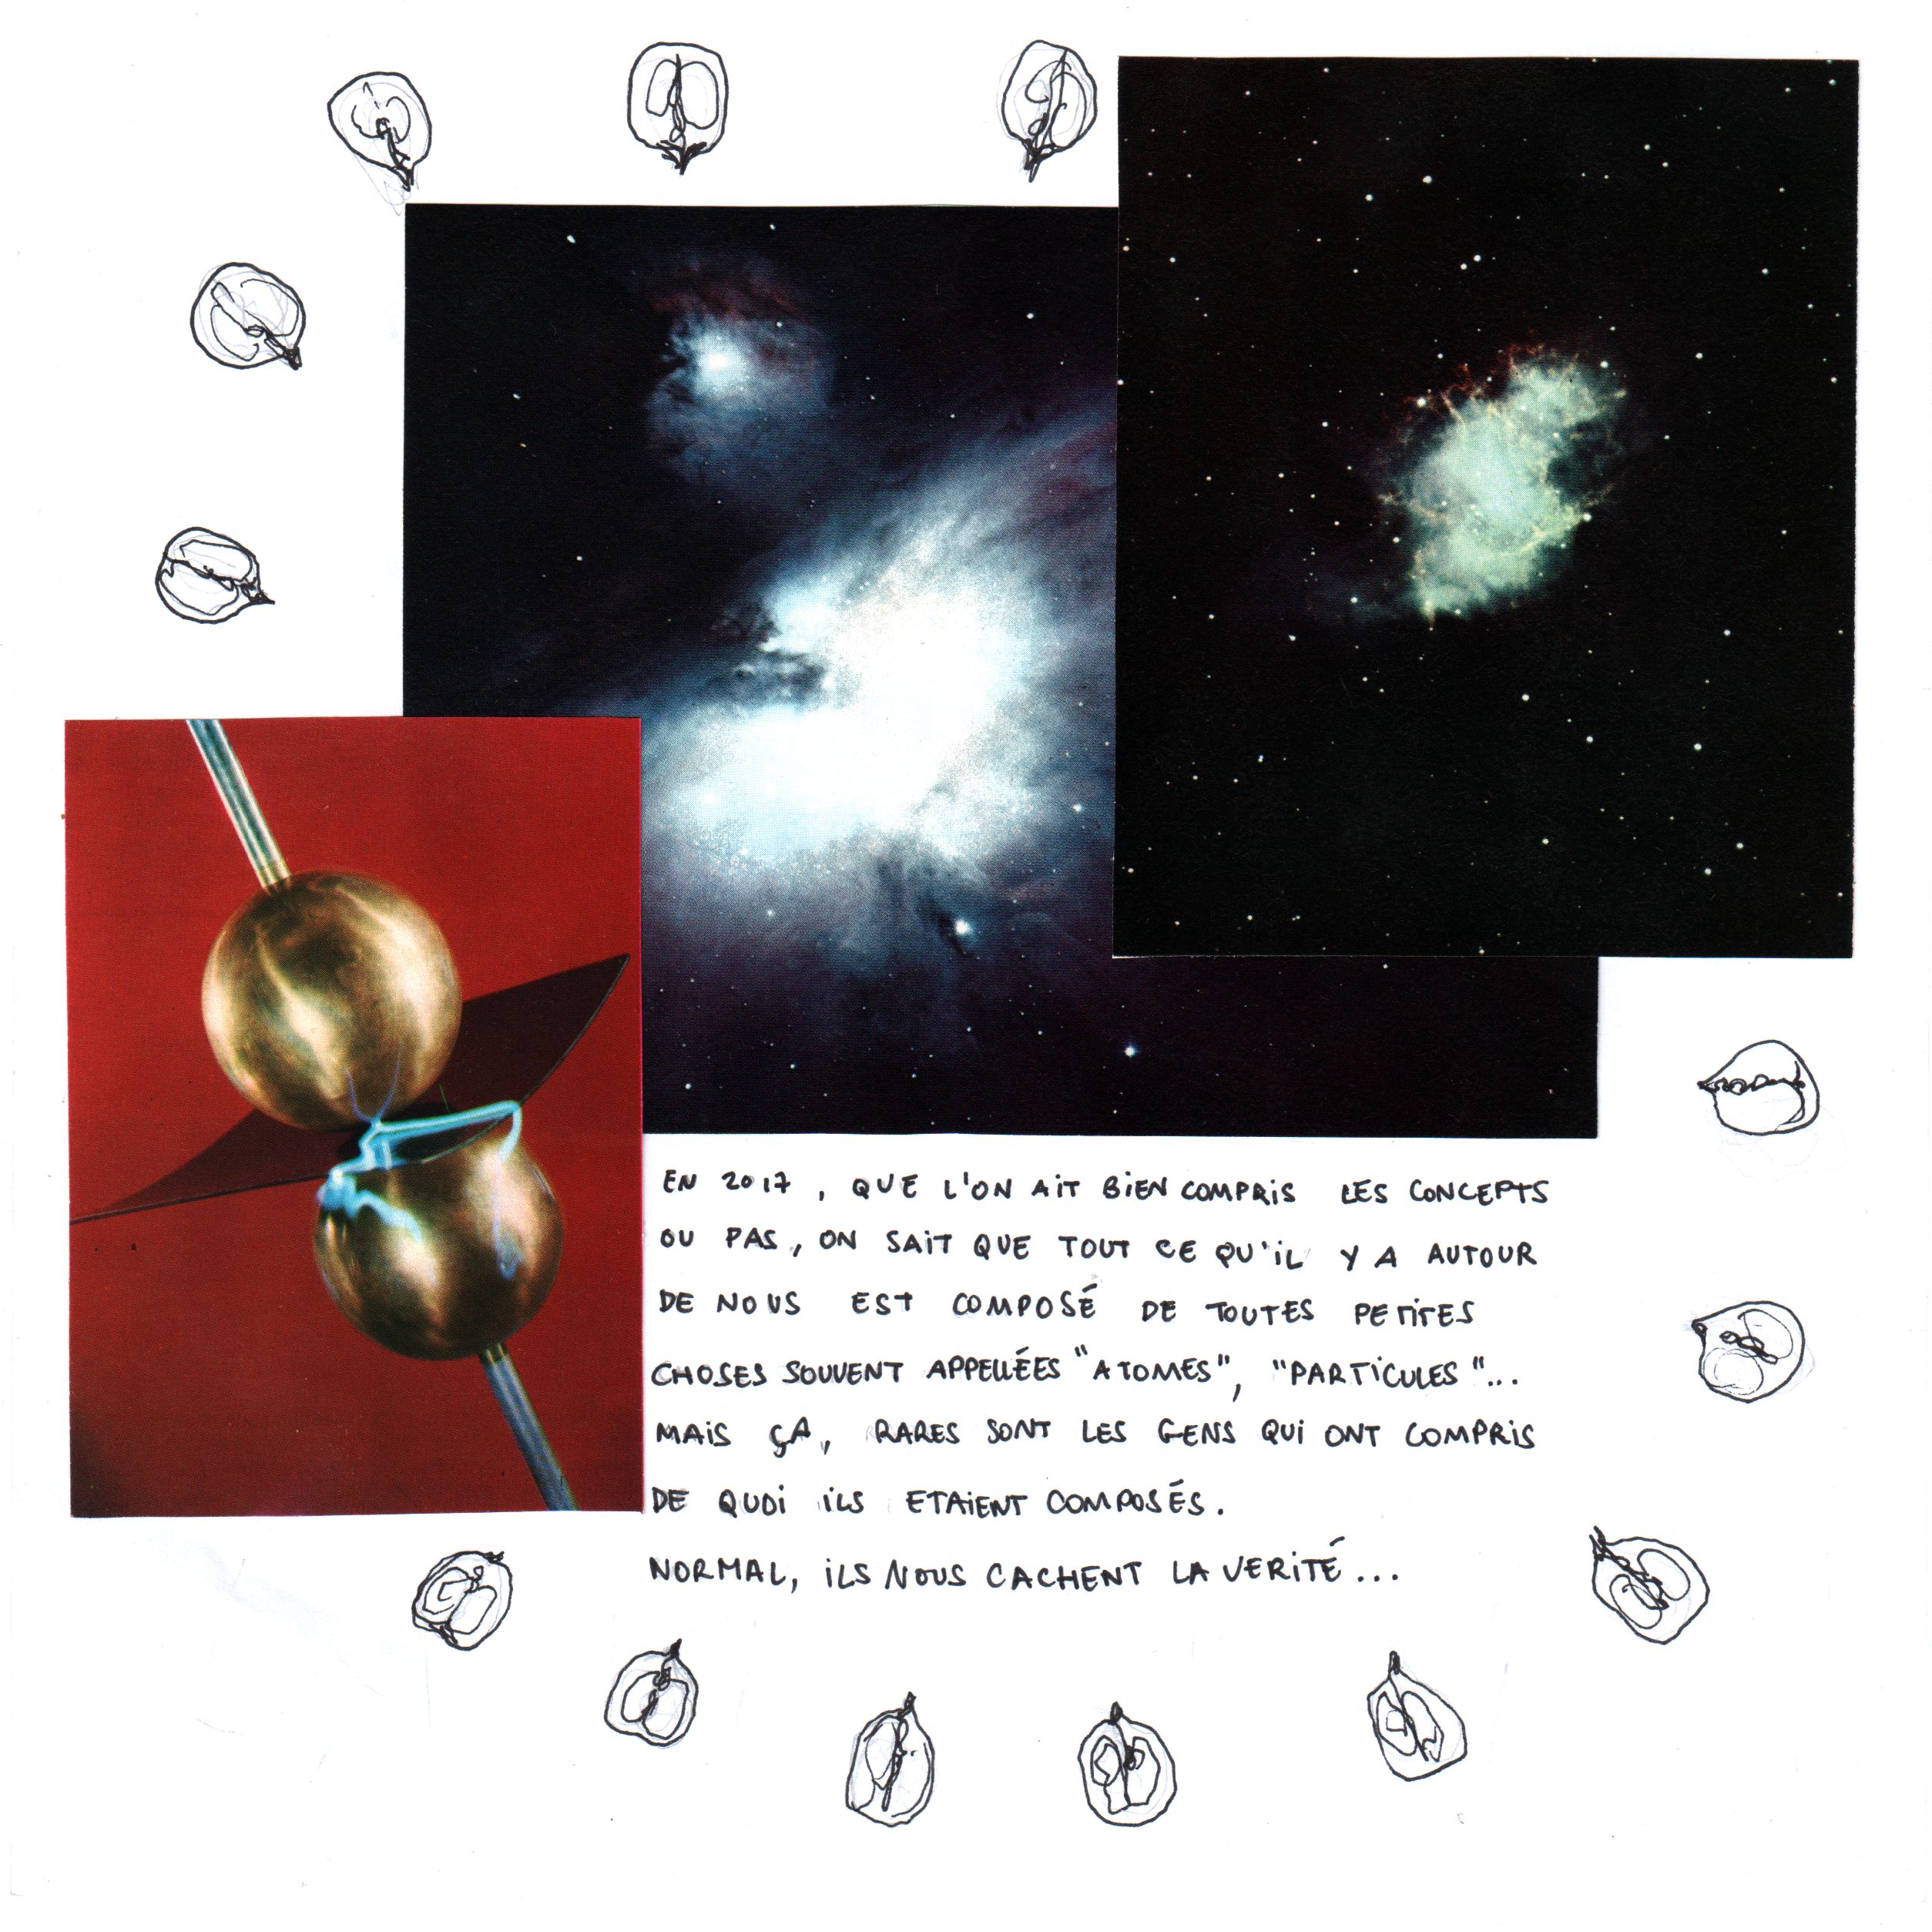 EN 2017, QUE L'ON AIT BIEN COMPRIS LES CONCEPTS
OU PAS, ON SAIT QUE TOUT CE QU'IL Y A AUTOUR
DE NOUS EST COMPOSÉ DE TOUTES PETITES
CHOSES SOUVENT APPELLÉES "ATOMES", "PARTICULES"...
MAIS ÇA, RARES SONT LES GENS QUI ONT COMPRIS
DE QUOI ILS ETAIENT COMPOSÉS.
NORMAL, ILS NOUS CACHENT LA VERITÉ...